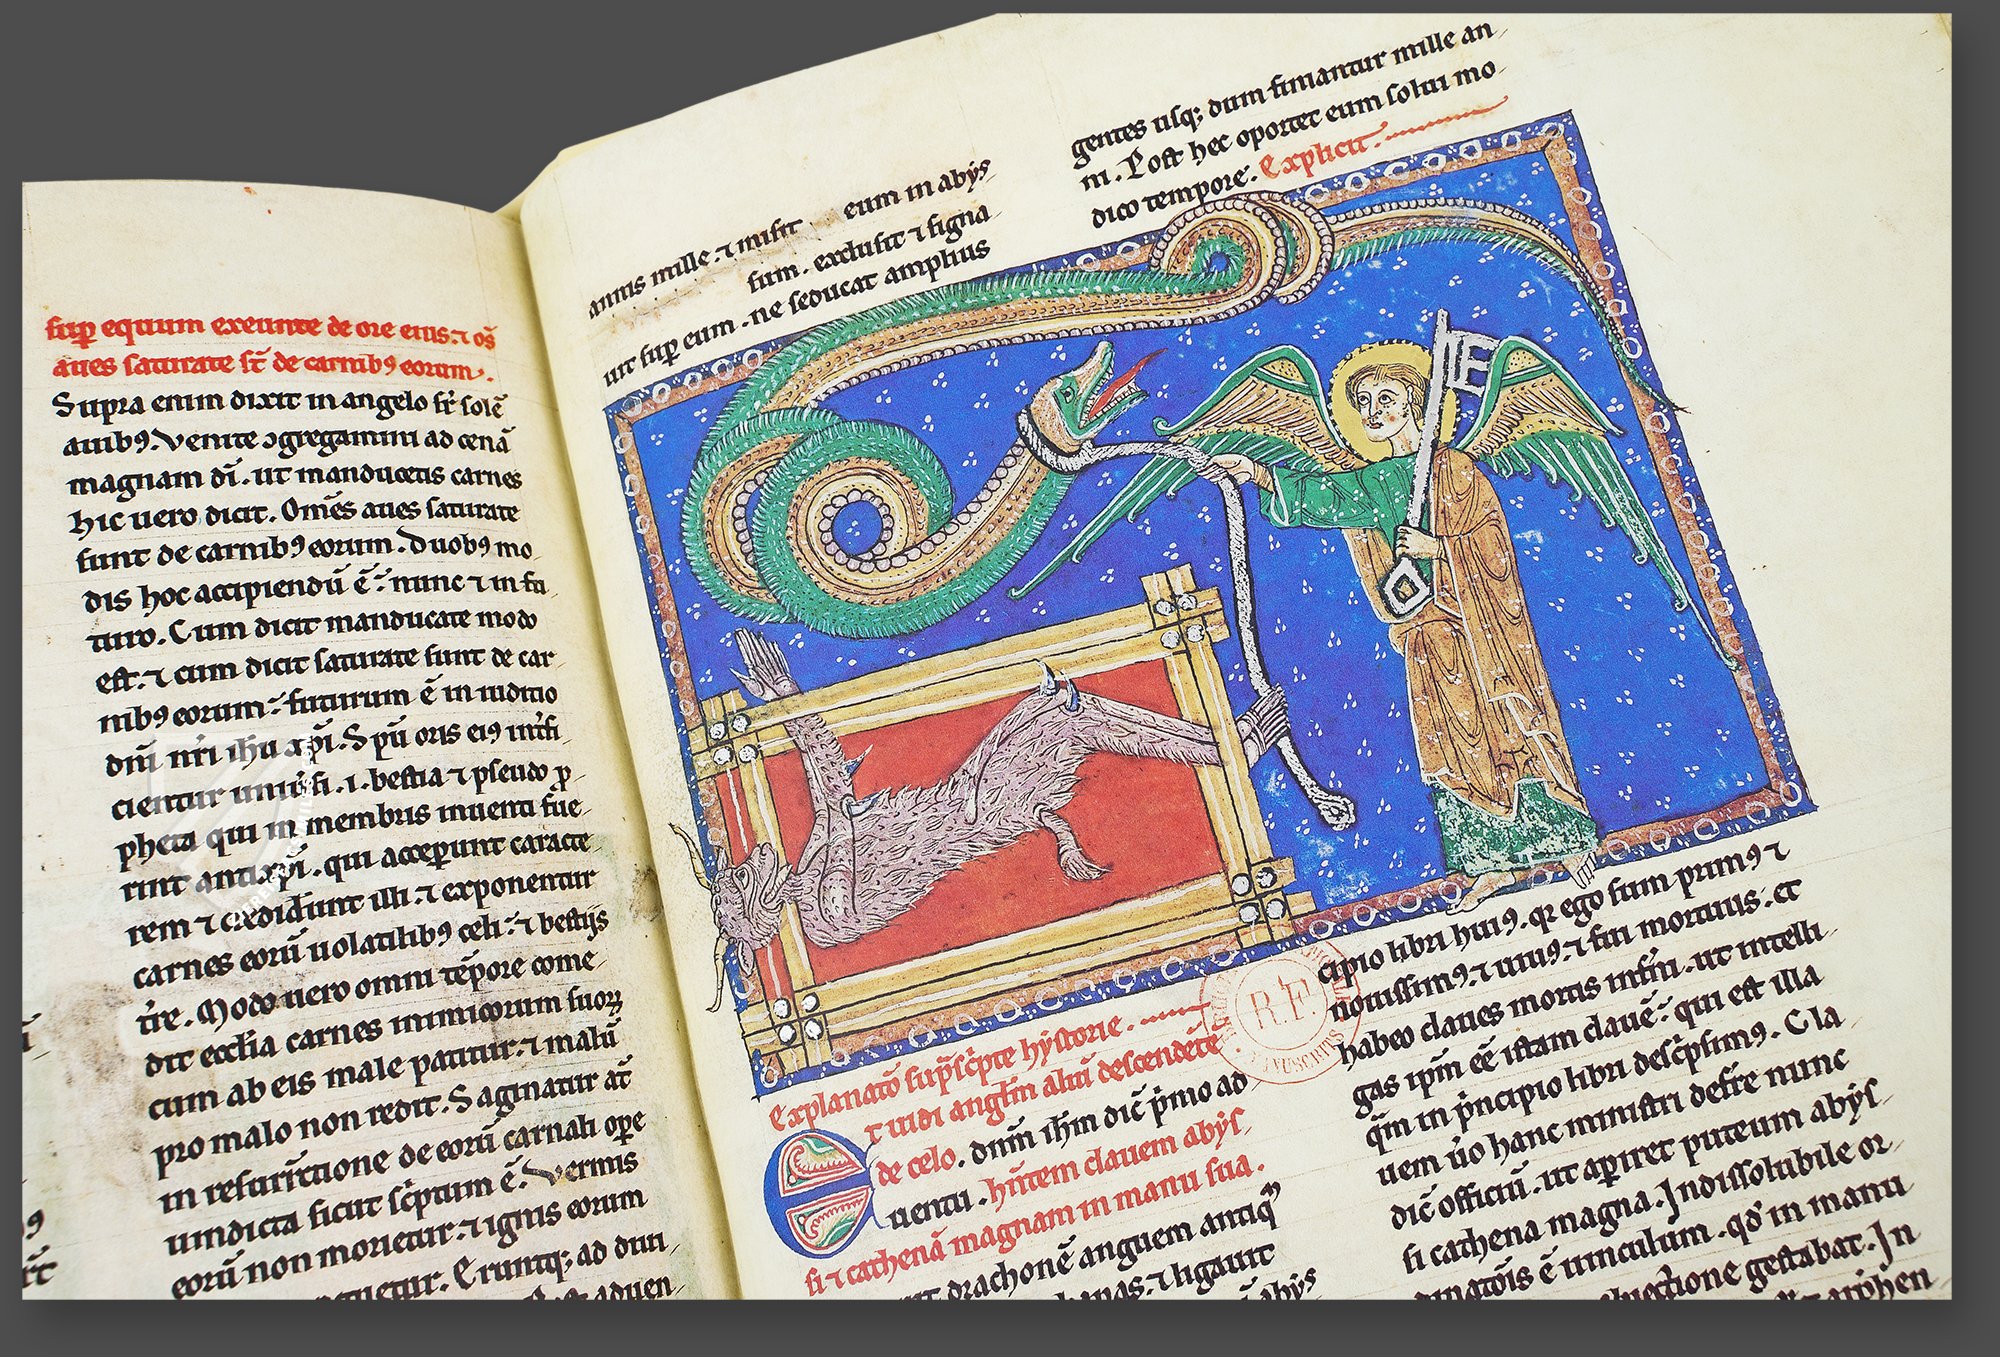 sup̄ equum exeunte de ore eius. ⁊ om̄s
aues saturate st̄ de carnibꝰ eorum.
Supra enim dixit in angelo st̄ sole
auibꝰ. Venite ꝯgregamini ad cenā
magnam dī. ut manducetis carnes
hic uero dicit. Om̄es aues saturate
sunt de carnibꝰ eorum. Duobꝰ mo
dis hoc accipiendū ē. nunc ⁊ in fu
turo. Cum dicit manducate modo
est. ⁊ cum dicit saturate sunt de car
nibꝰ eorum. futurum ē in iuditio
dn̄i nr̄i ih̄u xp̄i. Sp̄u oris eiꝰ int̄fi
cientur .i. bestia ⁊ pseudo p̄
pheta qui in membris inuenti fue
rint antixp̄i. qui acceperunt caracte
rem ⁊ crediderunt illi. ⁊ exponentur
carnes eorū uolatilibꝰ celi. ⁊ bestijs
tr̄e. Modo uero omni tēpore come
dit eccl̄ia carnes inimicorum suoꝝ
cum ab eis male patitur. ⁊ malū
pro malo non redit. Saginatur aūt
in resurrectione de eorū carnali ope
un dicta sicut sc̄ptum ē. Vermis
eorū non morietur. ⁊ ignis eorum
Eruntqꝫ ad
annis mille. ⁊ misit eum in abys
sum. exclusit ⁊ signa
uit sup̄ eum. ne seducat amplius
gentes usqꝫ dum finiantur mille an
ni. Post hec oportet eum solui mo
dico tempore. Explicit.
Explanatō sup̄sc̄pte hystorie.
Et uidi angl̄m aliū descendētē
de celo. dn̄m ih̄m dic̄ p̄mo ad
uentu. hn̄tem clauem abys
si ⁊ cathenā magnam in manu sua.
drachonē anguem antiqꝰ
⁊ ligauit
abys
cipio libri huiꝰ. qr̄ ego sum primꝰ ⁊
nouissimꝰ. ⁊ uiuꝰ. ⁊ fui mortuus. et
habeo claues mortis inferni. ut intelli
gas ip̄m eē istam clauē. qui est illa
qm̄ in p̄ncipio libri desc̄psimꝰ. Cla
uem ūo hanc ministri desr̄e nunc
dic̄ officiū. ut aperiret puteum abys
si cathena magna. Indissolubile or
dinatōis ē uinculum. qd̄ in manu
gestabat. In
R.F.
MANUSCRITS